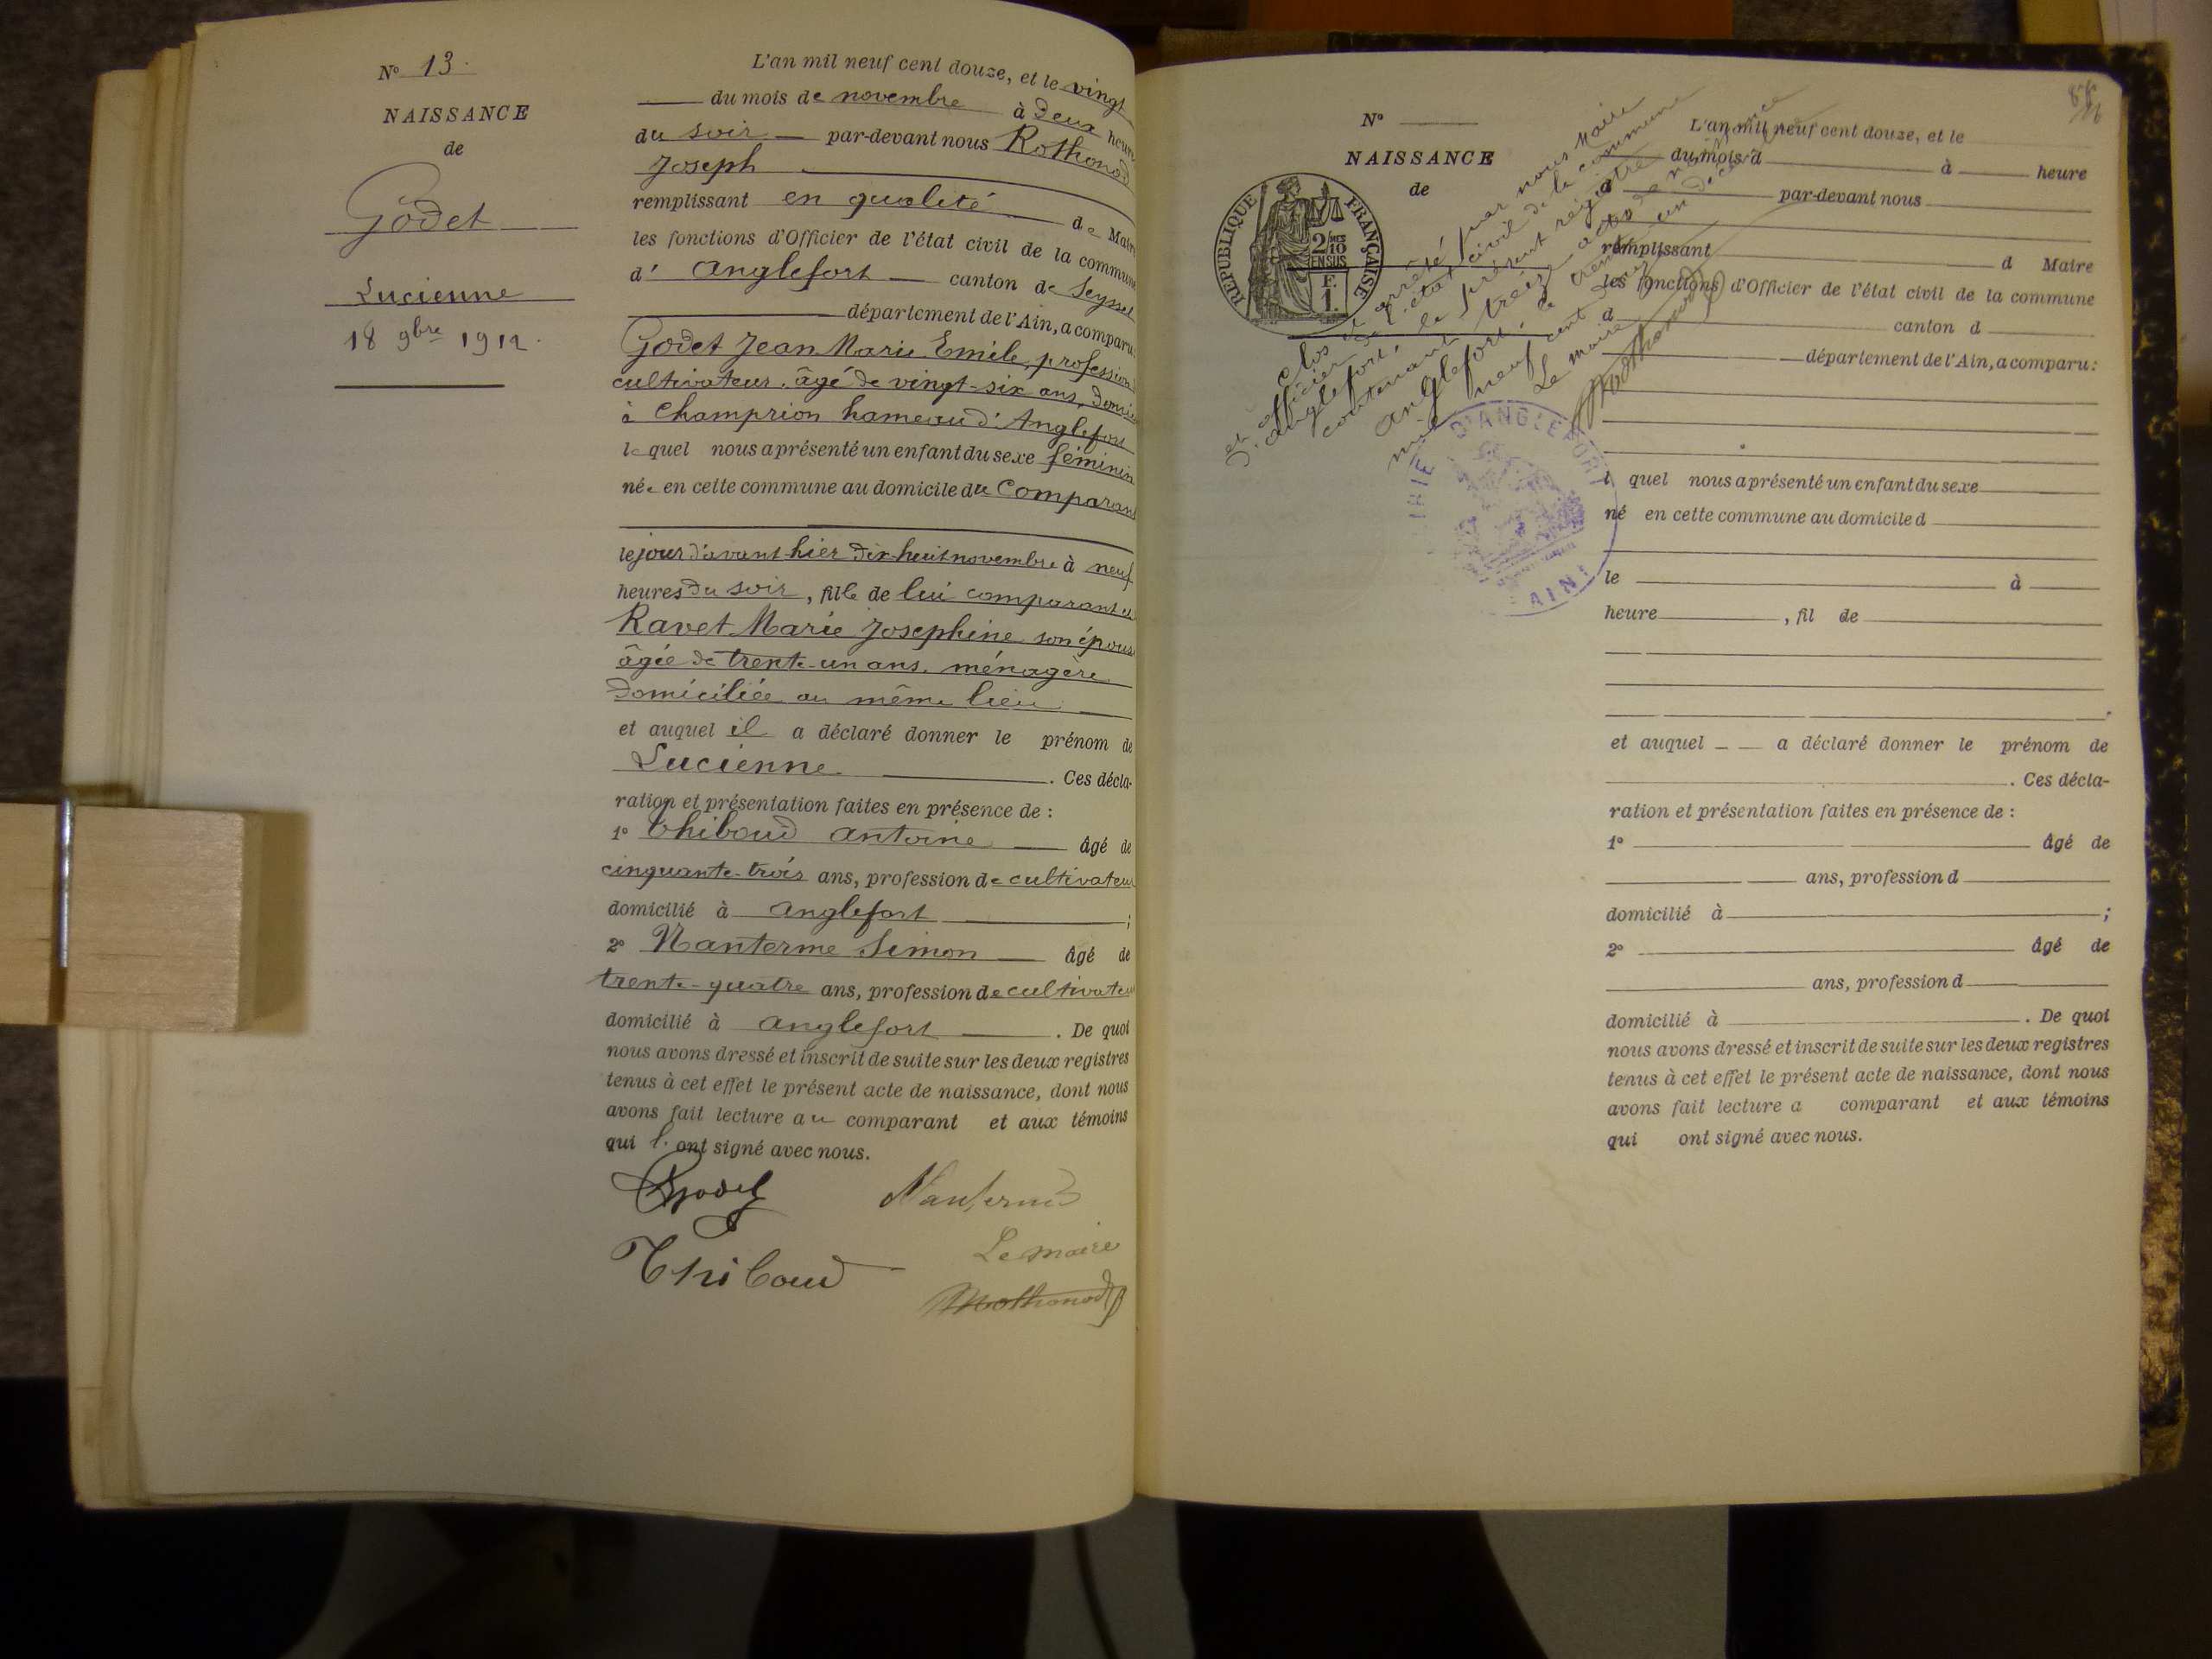 N° 13.
NAISSANCE
de
Godet
Lucienne
18 9bre 1912.
L'an mil neuf cent douze, et le vingt
du mois de novembre à Deux heures
du soir par-devant nous Rothonod
Joseph
remplissant en qualité de Maire
les fonctions d'Officier de l'état civil de la commune
d' Anglefort canton de Seyssel
département de l'Ain, a comparu:
Godet Jean Marie Emile, profession
cultivateur. âgé de vingt-six ans, domicilié
à Champrion hameau d'Anglefort
lequel nous a présenté un enfant du sexe féminin
née en cette commune au domicile du Comparant
le jour d'avant-hier dix-huit novembre à neuf
heures du soir, fille de lui comparant et
Ravet Marie Josephine son épouse
âgée de trente-un ans. ménagère
domiciliée au même lieu
et auquel il a déclaré donner le prénom de
Lucienne. Ces décla-
ration et présentation faites en présence de :
1° Thiboud Antoine âgé de
cinquante-trois ans, profession de cultivateur
domicilié à Anglefort ;
2° Nanterme Simon âgé de
trente-quatre ans, profession de cultivateur
domicilié à Anglefort. De quoi
nous avons dressé et inscrit de suite sur les deux registres
tenus à cet effet le présent acte de naissance, dont nous
avons fait lecture au comparant et aux témoins
qui l' ont signé avec nous.
Godet Nanterme
Thiboud Le maire
Rothonod
N°
NAISSANCE
de
RÉPUBLIQUE FRANÇAISE
2/10 MES
EN SUS
F.
1.
Clos et arrêté par nous Maire
et officier de l'état civil de la commune
d'Anglefort, le présent registre
contenant treize actes de naissance
Anglefort, le trente un décembre
mil neuf cent douze
Le maire
Rothonod
MAIRIE D'ANGLEFORT
AIN
L'an mil neuf cent douze, et le
du mois d à heure
d par-devant nous
remplissant d Maire
les fonctions d'Officier de l'état civil de la commune
d canton d
département de l'Ain, a comparu:
l quel nous a présenté un enfant du sexe
né en cette commune au domicile d
le à
heure , fil de
et auquel a déclaré donner le prénom de
. Ces décla-
ration et présentation faites en présence de :
1° âgé de
ans, profession d
domicilié à ;
2° âgé de
ans, profession d
domicilié à . De quoi
nous avons dressé et inscrit de suite sur les deux registres
tenus à cet effet le présent acte de naissance, dont nous
avons fait lecture a comparant et aux témoins
qui ont signé avec nous.